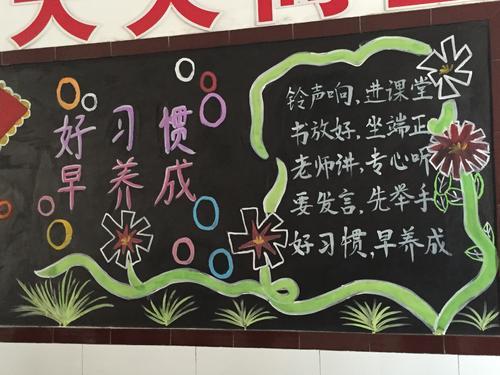 好习惯
早养成
铃声响,进课堂
书放好,坐端正
老师讲,专心听
要发言,先举手
好习惯,早养成